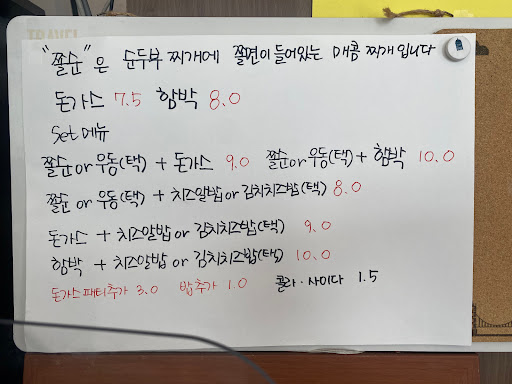 TRAVEL
"쫄순"은 순두부 찌개에 쫄면이 들어있는 매콤 찌개 입니다
돈가스 7.5 함박 8.0
Set 메뉴
쫄순 or 우동(택) + 돈가스 9.0 쫄순 or 우동(택) + 함박 10.0
쫄순 or 우동(택) + 치즈알밥 or 김치치즈밥(택) 8.0
돈가스 + 치즈알밥 or 김치치즈밥(택) 9.0
함박 + 치즈알밥 or 김치치즈밥(택) 10.0
돈가스 패티추가 3.0 밥 추가 1.0 콜라 · 사이다 1.5